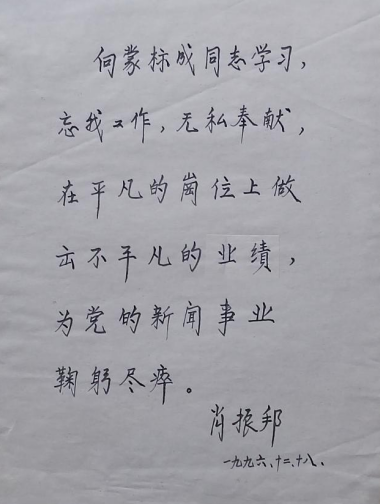 向蒙标成同志学习，
忘我工作，无私奉献，
在平凡的岗位上做
出不平凡的业绩，
为党的新闻事业
鞠躬尽瘁。
肖振邦
一九九六、十二、十八、